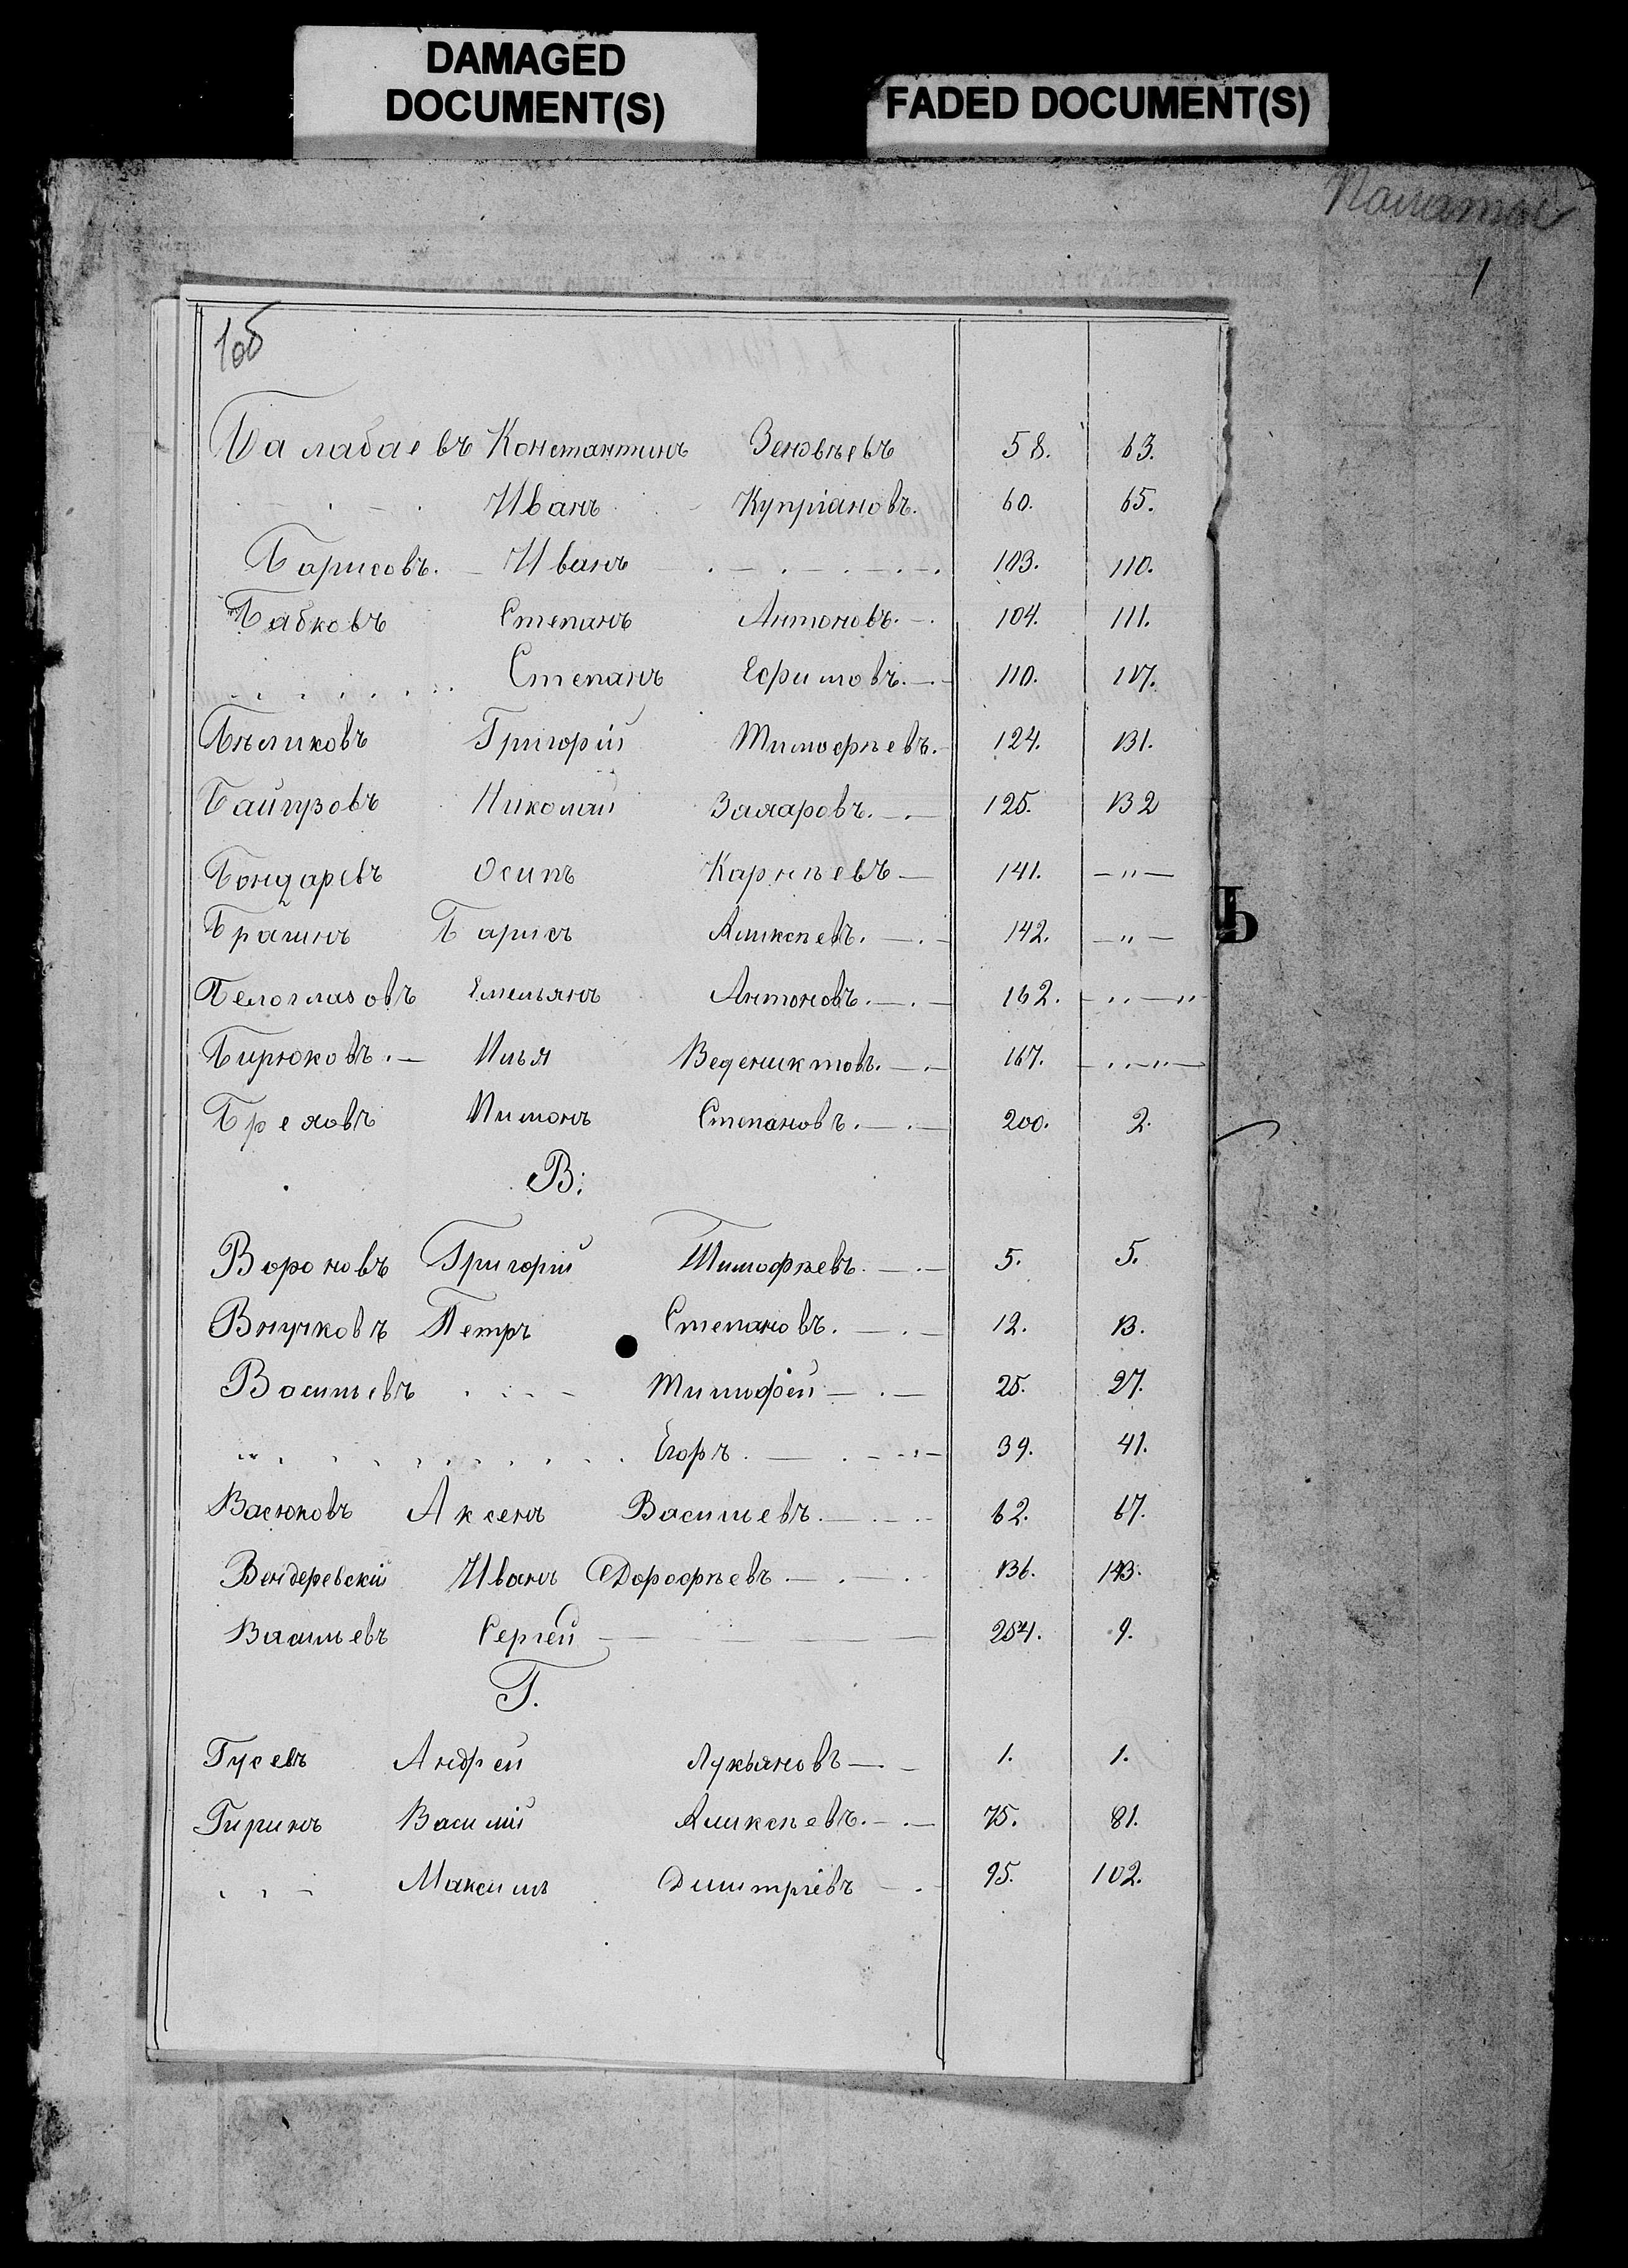 DAMAGED
DOCUMENT(S)
FADED DOCUMENT(S)
1
1об
Балабаевъ Константинъ Зеновьевъ 58. 63.
Иванъ Купріановъ. 60. 65.
Барисовъ. Иванъ 103. 110.
Бабковъ Степанъ Антоновъ. 104. 111.
Степанъ Ефимовъ. 110. 117.
Бѣликовъ Григорій Тимофѣевъ. 124. 131.
Байгузовъ Николай Захаровъ. 125. 132
Бондаревъ Осипъ Карнѣевъ 141. — " —
Брагинъ Барисъ Аликсѣевъ. 142. — " —
Белоглазовъ Емельянъ Антоновъ. 162. — " — "
Бирюковъ. Илья Веденихтовъ. 167. — " — " —
Бреховъ Пимонъ Степановъ. 200. 2.
В.
Вороновъ Григорій Тимофѣевъ. 5. 5.
Внучковъ Петръ Степановъ. 12. 13.
Васильевъ Тимофей 25. 27.
" Егоръ. 39. 41.
Васюковъ Аксенъ Васильевъ. 62. 67.
Вендеревскій Иванъ Дорофѣевъ. 136. 143.
Васильевъ Сергей 204. 9.
Г.
Гусевъ Андрей Лукьяновъ 1. 1.
Гиринъ Василій Аликсѣевъ. 75. 81.
Максимъ Димитріевъ 95. 102.
Ь